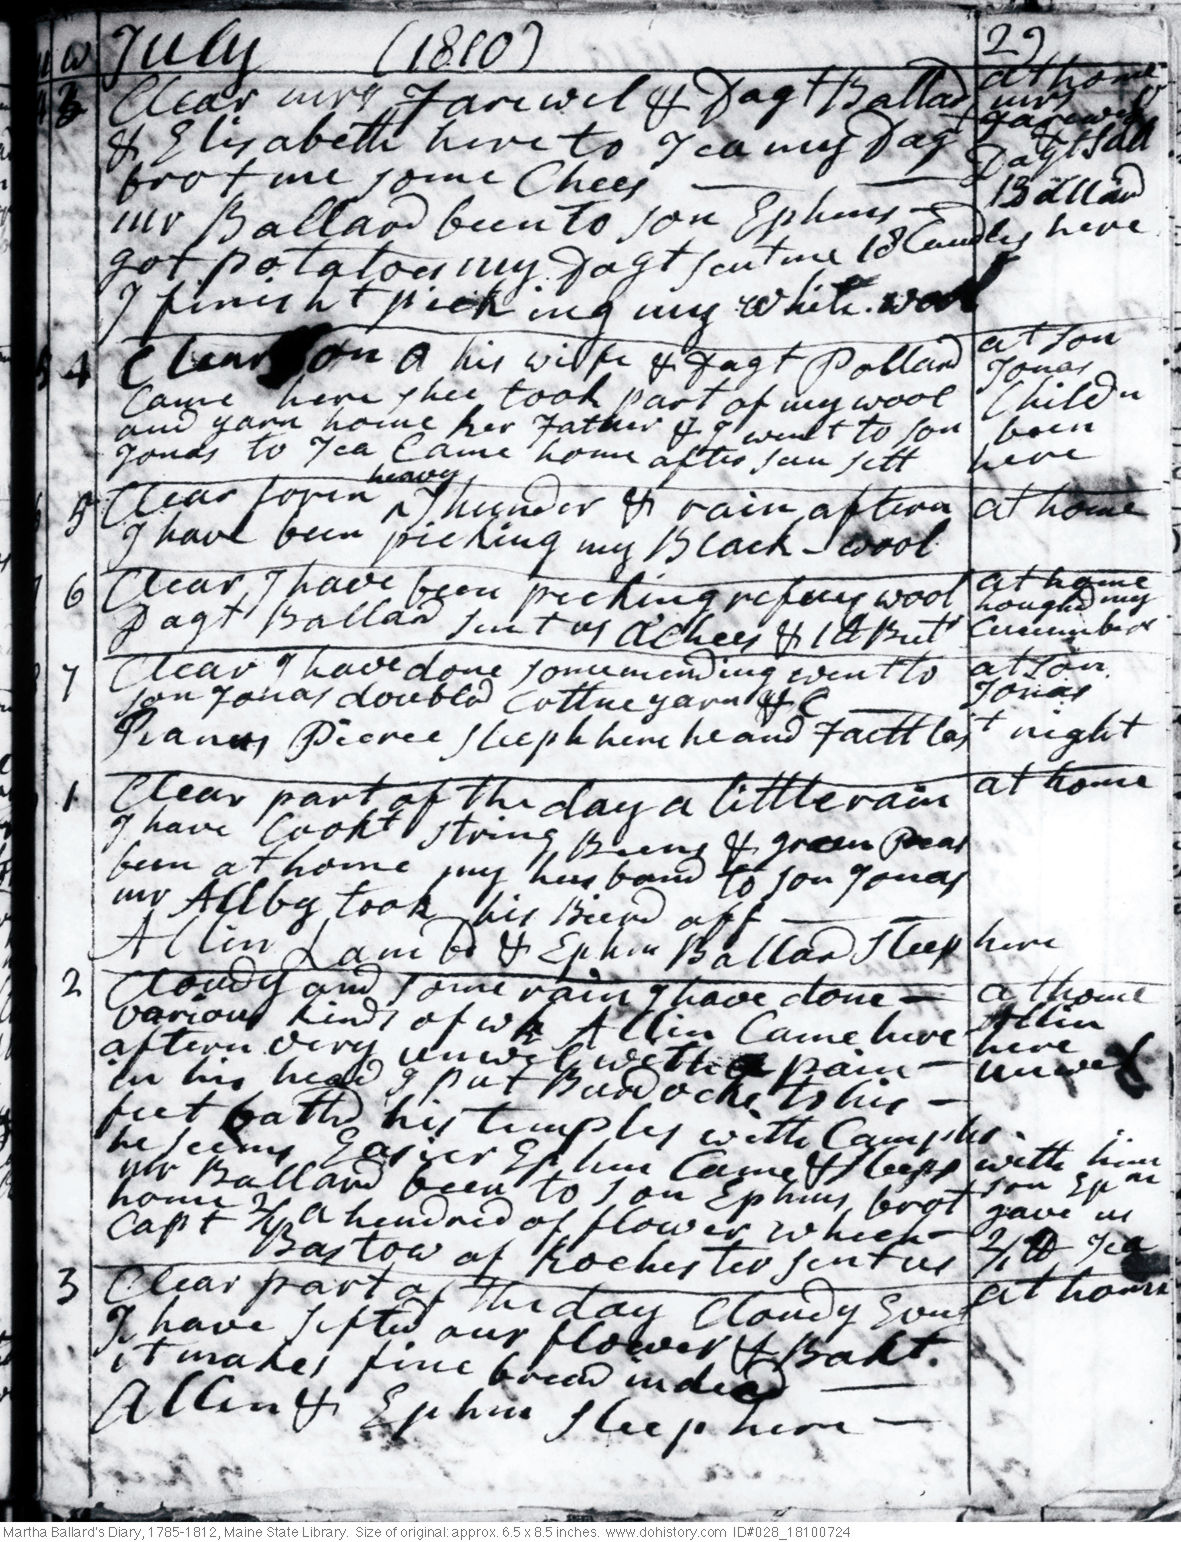 W July (1810) 29
3 Clear mrs Farewel & Dagt Ballad at home
& Elisabeth here to Tea my Dag mrs Farewel
brot me some Chees — — & Dagt Sall
mr Ballard been to son Ephms — Ballard
got potatoes my Dagt sent me 18 Candles here
I finisht picking my white wool
4 Clear son & his wife & Dagt Pollard at son
Came here shee took part of my wool Jonas
and yarn home her Father & I went to son Childn been
Jonas to Tea Came home after sun sett here
heavy
5 Clear foren ^ Thunder & rain aftern at home
I have been picking my Black wool
6 Clear, I have been picking refuse wool at home
Dagt Ballard sent us a Chees & 1 lb But houghd my Cucumbers
7 Clear I have done some mending went to at son
son Jonas doubled Cottne yarn &C Jonas
Pierce sleep here he and last night
1 Clear part of the day a little rain at home
I have Cookt string Beens & green Peas
been at home my husband to son Jonas
mr Allby took his Bierd off —
Allin Lambd & Ephm Ballard sleep here
2 Cloudy and some rain I have done — at home
various kinds of wk Allin Came here Allin
aftern very unwel with a pain — here
in his head I put Burdocks to his — unwel
feet bathd his temples with Camphr.
he seems Easier Ephm Came & sleeps with him
mr Ballard been to son Ephms, brot son Ephm
home 1/2 a hundred of flower which — gave us
Capt Bastow of Rochester sent us 1/2 lb Tea
3 Clear part of the day Cloudy Evng at home
I have sifted our flower & Bakt.
it makes fine bread indead —
Allin & Ephm sleep here —
Martha Ballard's Diary, 1785-1812, Maine State Library. Size of original: approx. 6.5 x 8.5 inches. www.dohistory.com ID#028_18100724